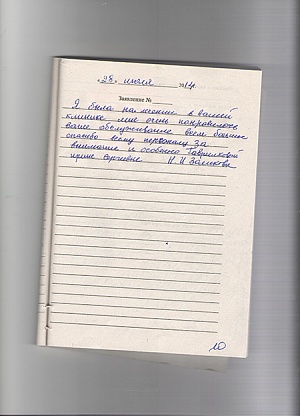 «28» июля 2014
Заявление № ____
Я была на лечение в вашей
клинике мне очень понравелось
ваше обслуживание всем большое
спасибо всему персоналу за
внимание и особенно Гавриловой
ирине сергевне Н.И
10